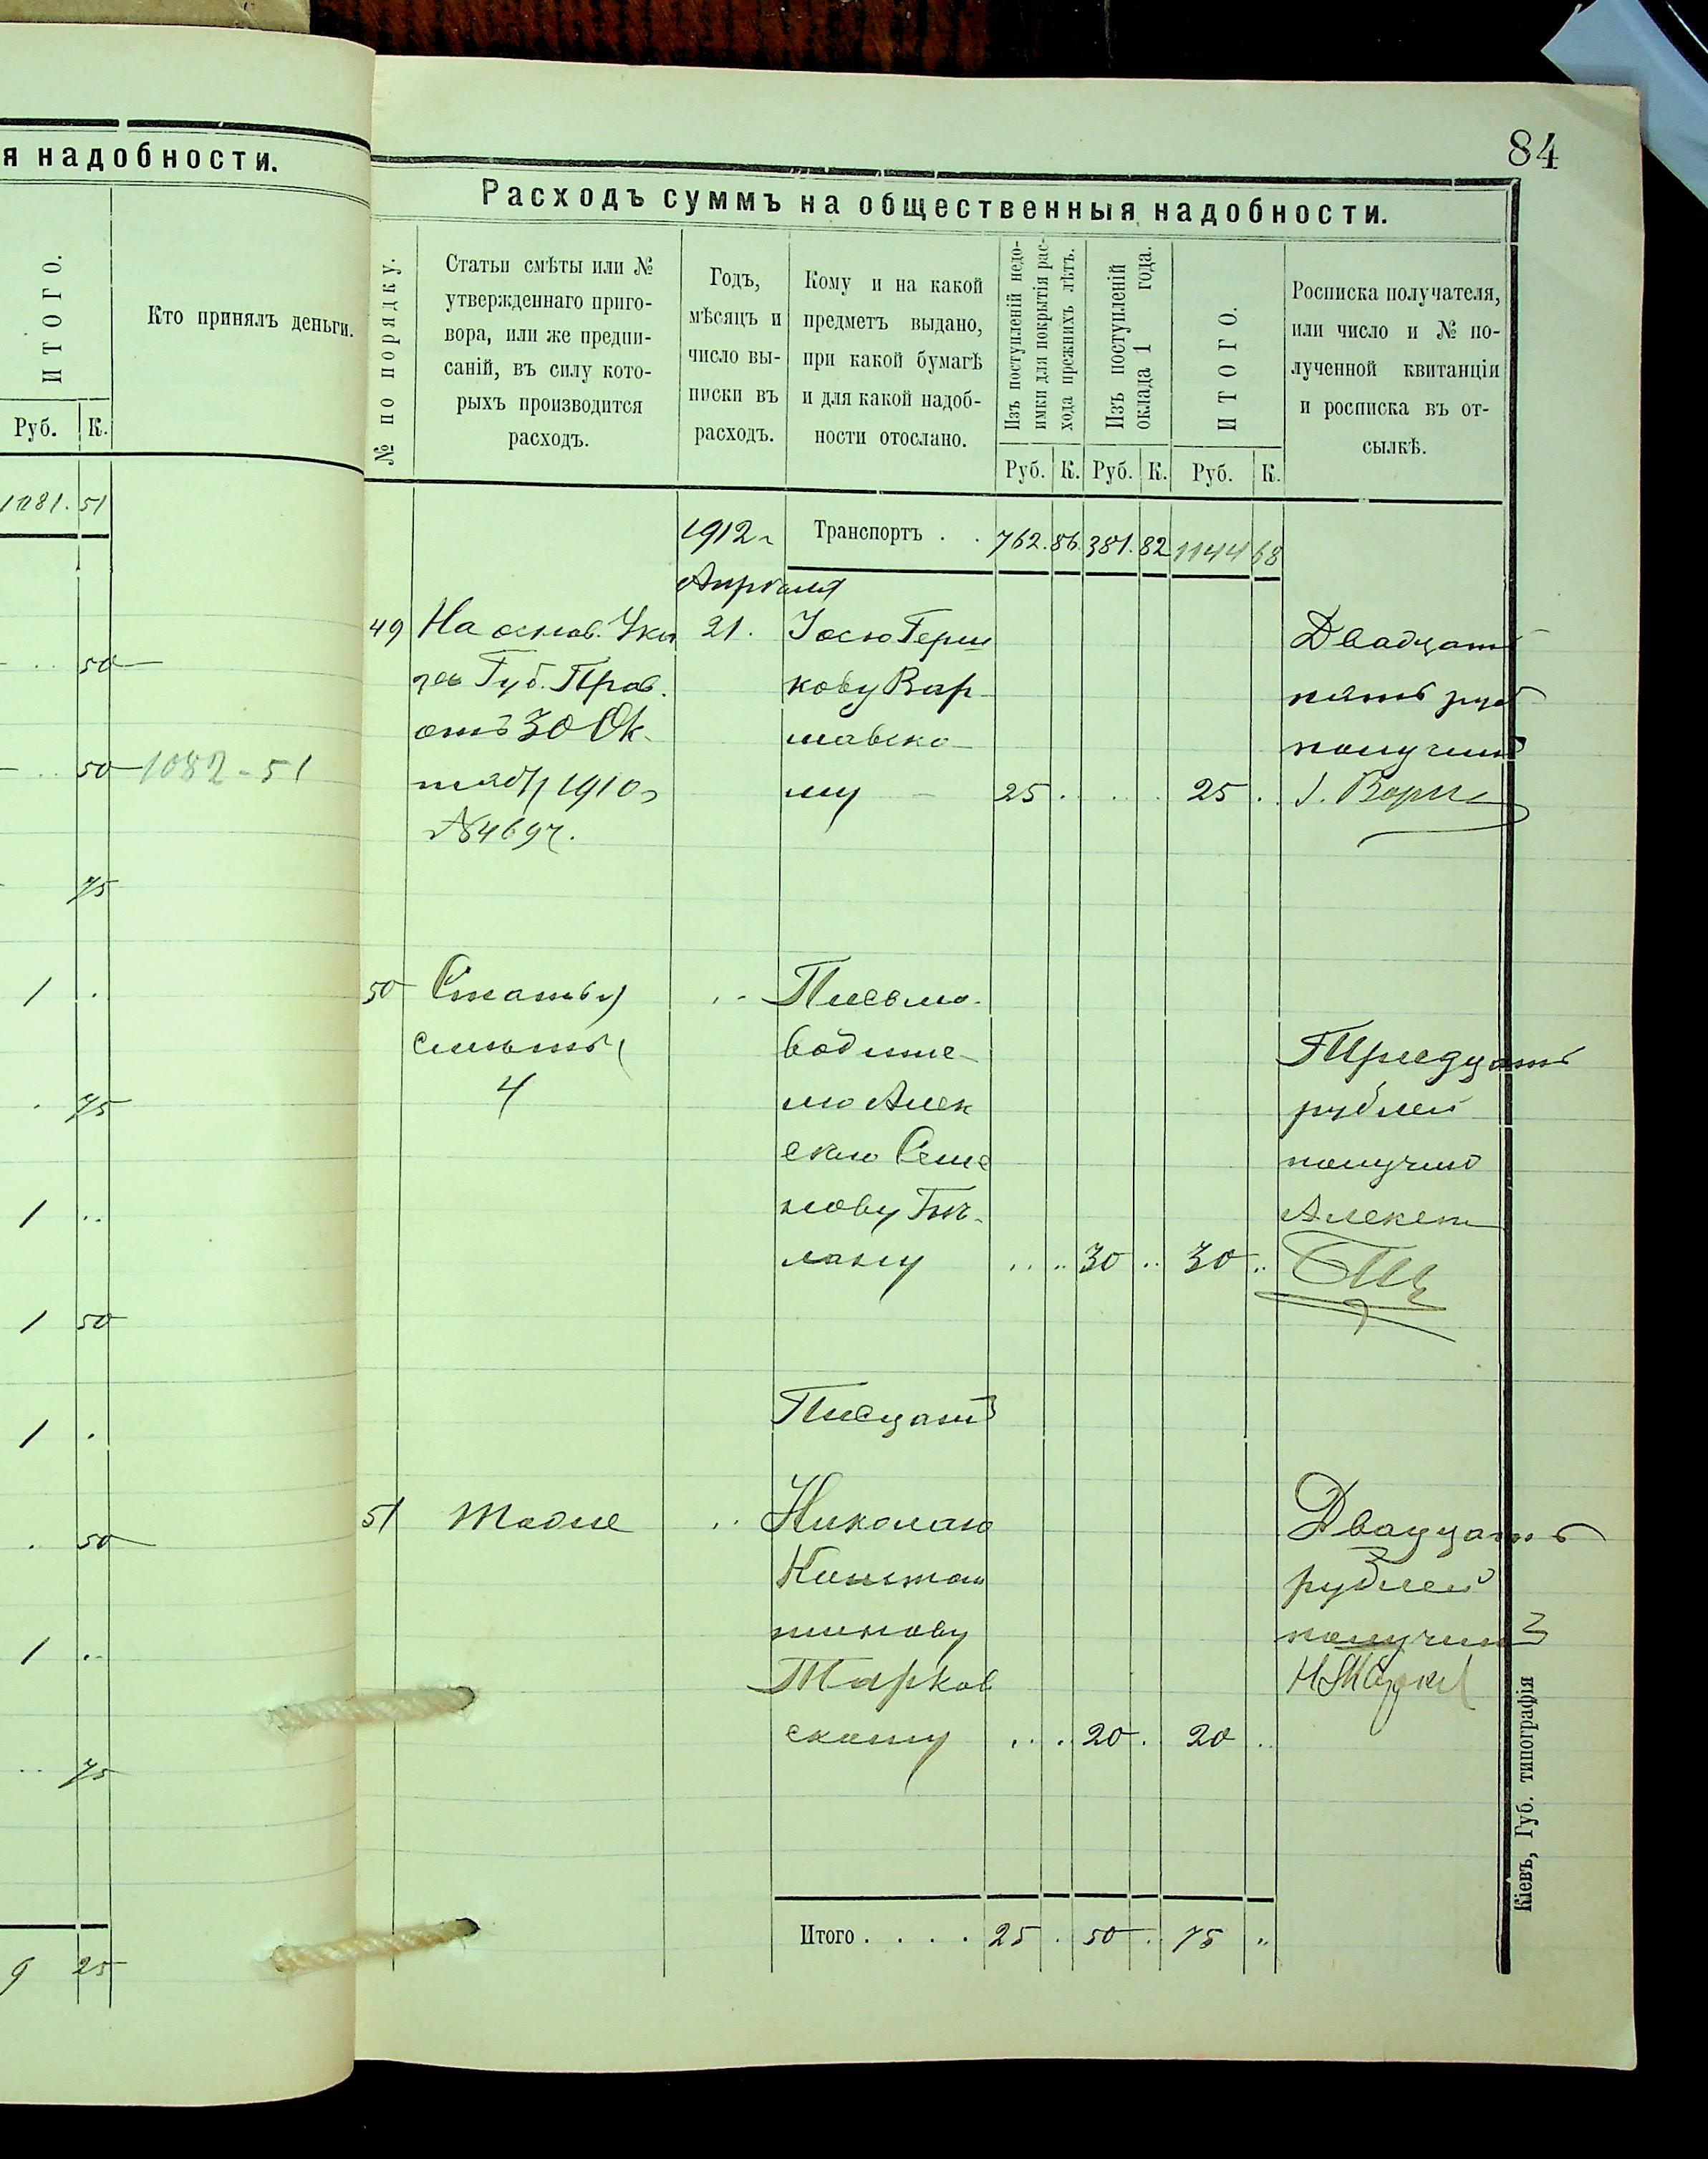 я надобности.
ИТОГО.
Кто принялъ деньги.
Руб. К.
1081. 51
50
50 1082-51
75
1 .
75
1 ..
1 50
1 .
. 50
1 ..
75
9 25
84
Расходъ суммъ на общественныя надобности.
№ по порядку.
Статьи смѣты или №
утвержденнаго приго-
вора, или же предпи-
саній, въ силу кото-
рыхъ производится
расходъ.
Годъ,
мѣсяцъ и
число вы-
писки въ
расходъ.
Кому и на какой
предметъ выдано,
при какой бумагѣ
и для какой надоб-
ности отослано.
Изъ поступленій недо-
имки для покрытія рас-
хода прежнихъ лѣтъ.
Изъ поступленій
оклада 1 года.
ИТОГО.
Росписка получателя,
или число и № по-
лученной квитанціи
и росписка въ от-
сылкѣ.
Руб. К. Руб. К. Руб. К.
1912 г Транспортъ . . 762. 86. 381. 82 1144 68
Апрѣля
49 На основ. Ука 21. Іосю Герш
за Губ. Прав.
отъ 30 Ок-
тяб 1910 г
№ 4697.
кову Вар
шавско
му 25 . . . 25 .
Двадцать
пять руб
получилъ
50 Статьи
смѣты
4
Письмо-
водите-
лю Алек
сѣю Семе
нову Гит-
ману .. .. 30 .. 30 ..
Тридцать
рублей
получилъ
Алексѣй
Писцамъ
51 тоже .. Николаю
Констан
тинову
Тарков
скому .. . 20 . 20 ..
Двадцать
рублей
получилъ
Итого . . . . 25 . 50 . 75 "
Кіевъ, Губ. типографія